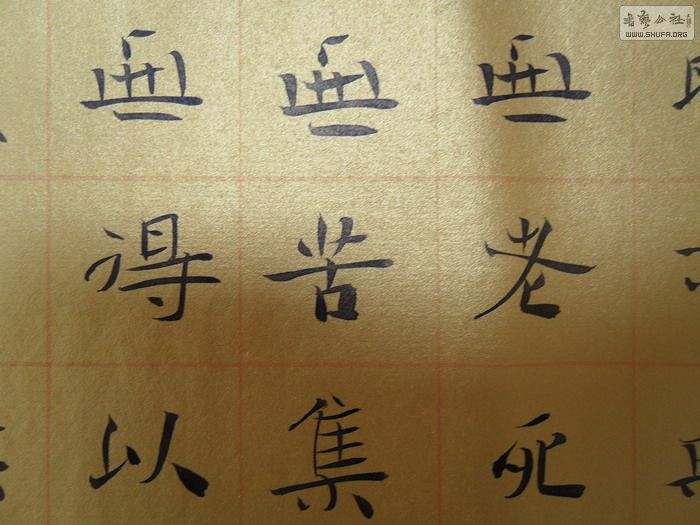 無老死
無苦集
無得以
書藝公社
WWW.SHUFA.ORG